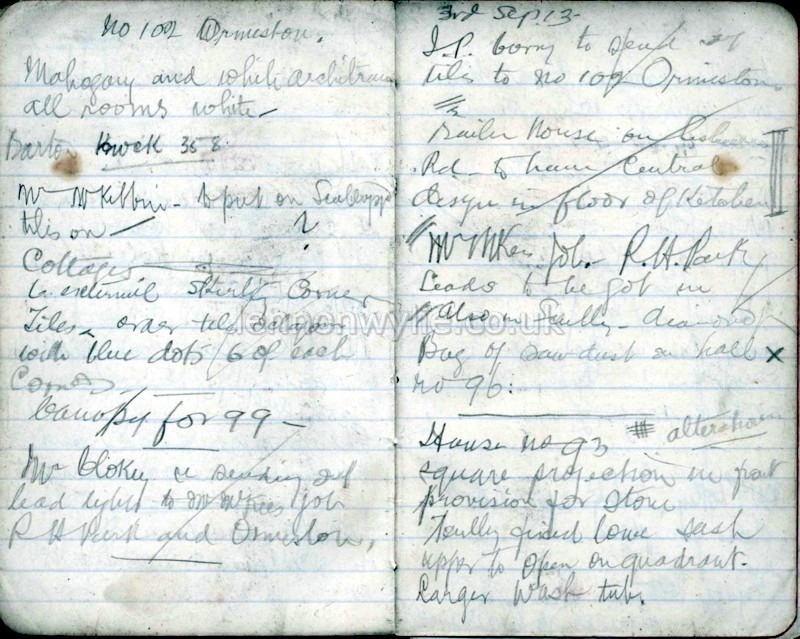 No 102 Ormiston.
Mahogany and white architrave
all rooms white -
Barton 358
Mr McKibbin - to put on
tiles on - ?
Cottages
external Corner
Tiles - order
with blue dots / 6 of each
Corner
Canopy for 99 -
Mr Clokey is sending out
lead lights to Mr McKees job
R H Park and Ormiston,
3rd Sep. 13 -
J.P. Corry to send
tiles to No 102 Ormiston
House on
Rd - to have Central
design in floor of Kitchen
Mr McKees Job - R.H. Park
Leads to be got in
also in - diamond
Bag of sawdust in hall x
no 96.
House no 93 # alteration
square projection in
provision for
fixed lower sash
upper to open on quadrant -
Larger Wash tub.
lennonwylie.co.uk